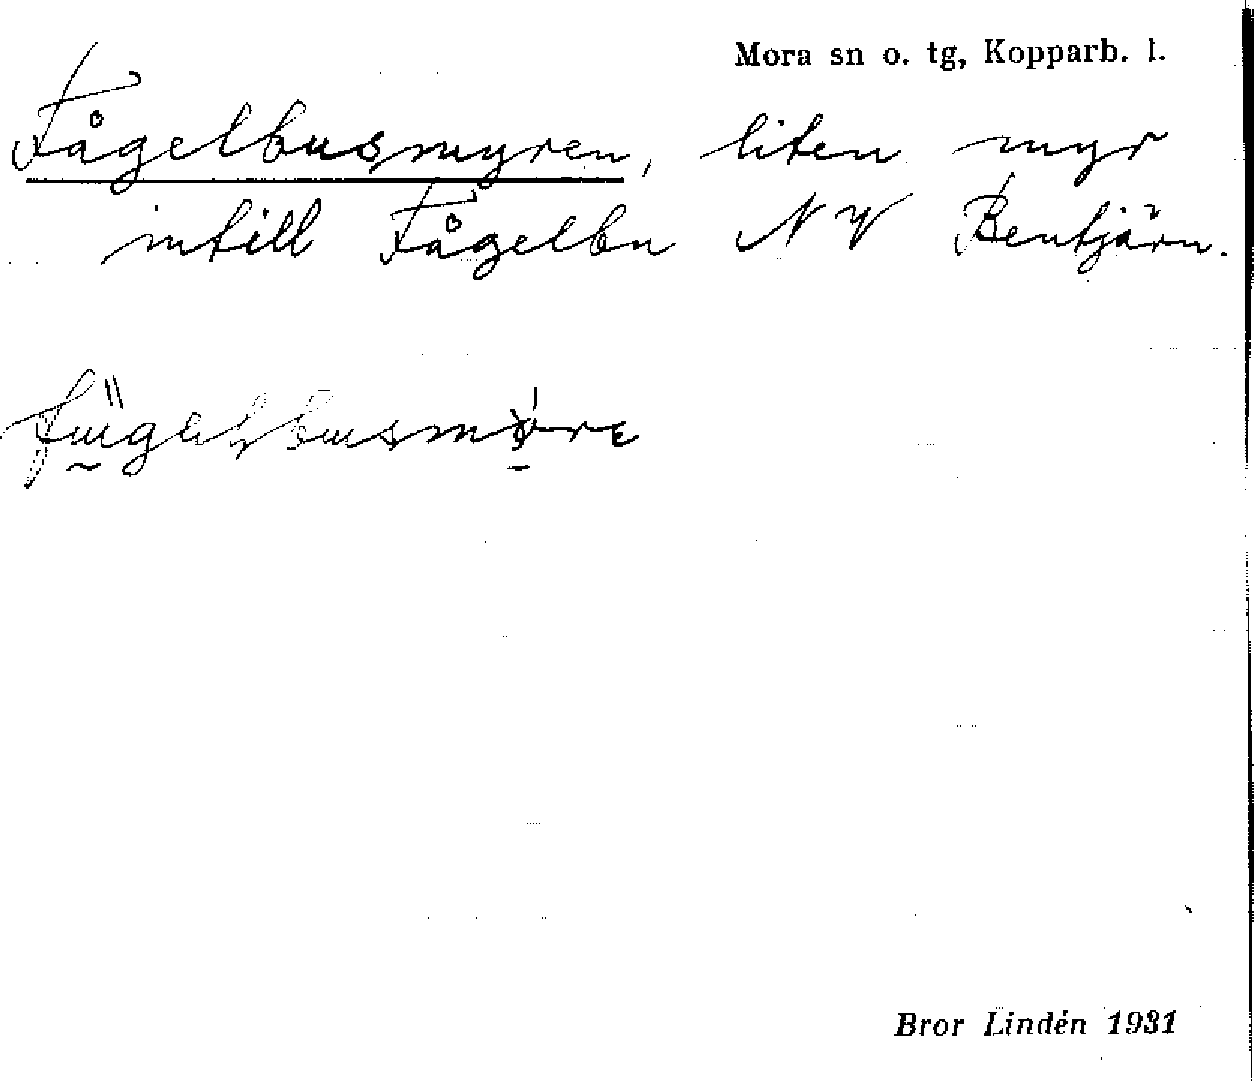 Mora sn o. tg, Kopparb. l.
Fågelbusmyren, liten myr
intill Fågelbu NV Bentjärn.
Bror Lindén 1931